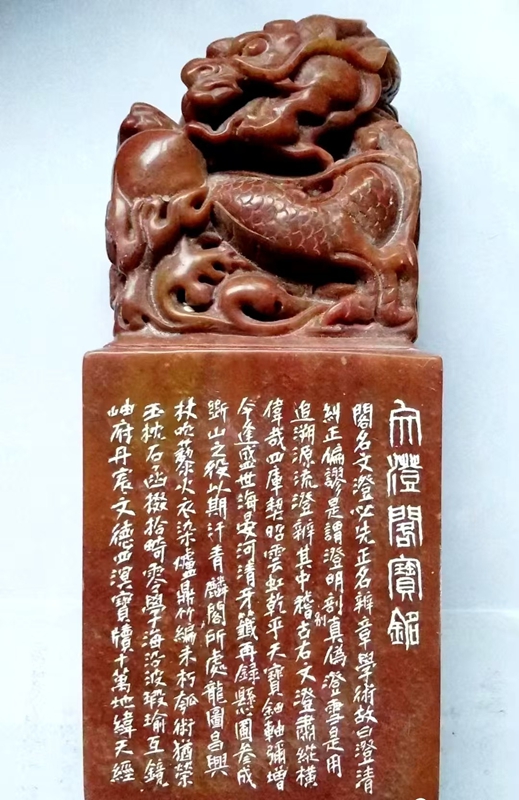 文澄閣寶銘
閣名文澄必先正名辨章學術故曰澄清
糾正偏謬是謂澄明剖別真偽澄雪是用
追溯源流澄辨其中稽古右文澄肅縱橫
偉哉四庫契昭雲虹乾乎天寶軸彌增
今逢盛世海晏河清牙籤再錄懸圖叁成
斷山之役以期汗青麟閣所處龍圖昌興
杖吹藜火衣染爐鼎竹編未朽術猶榮
玉枕石函掇拾畸零學海沿波瑕瑜互鏡
岫府丹宸文德四溟寶牘十萬地緯天經